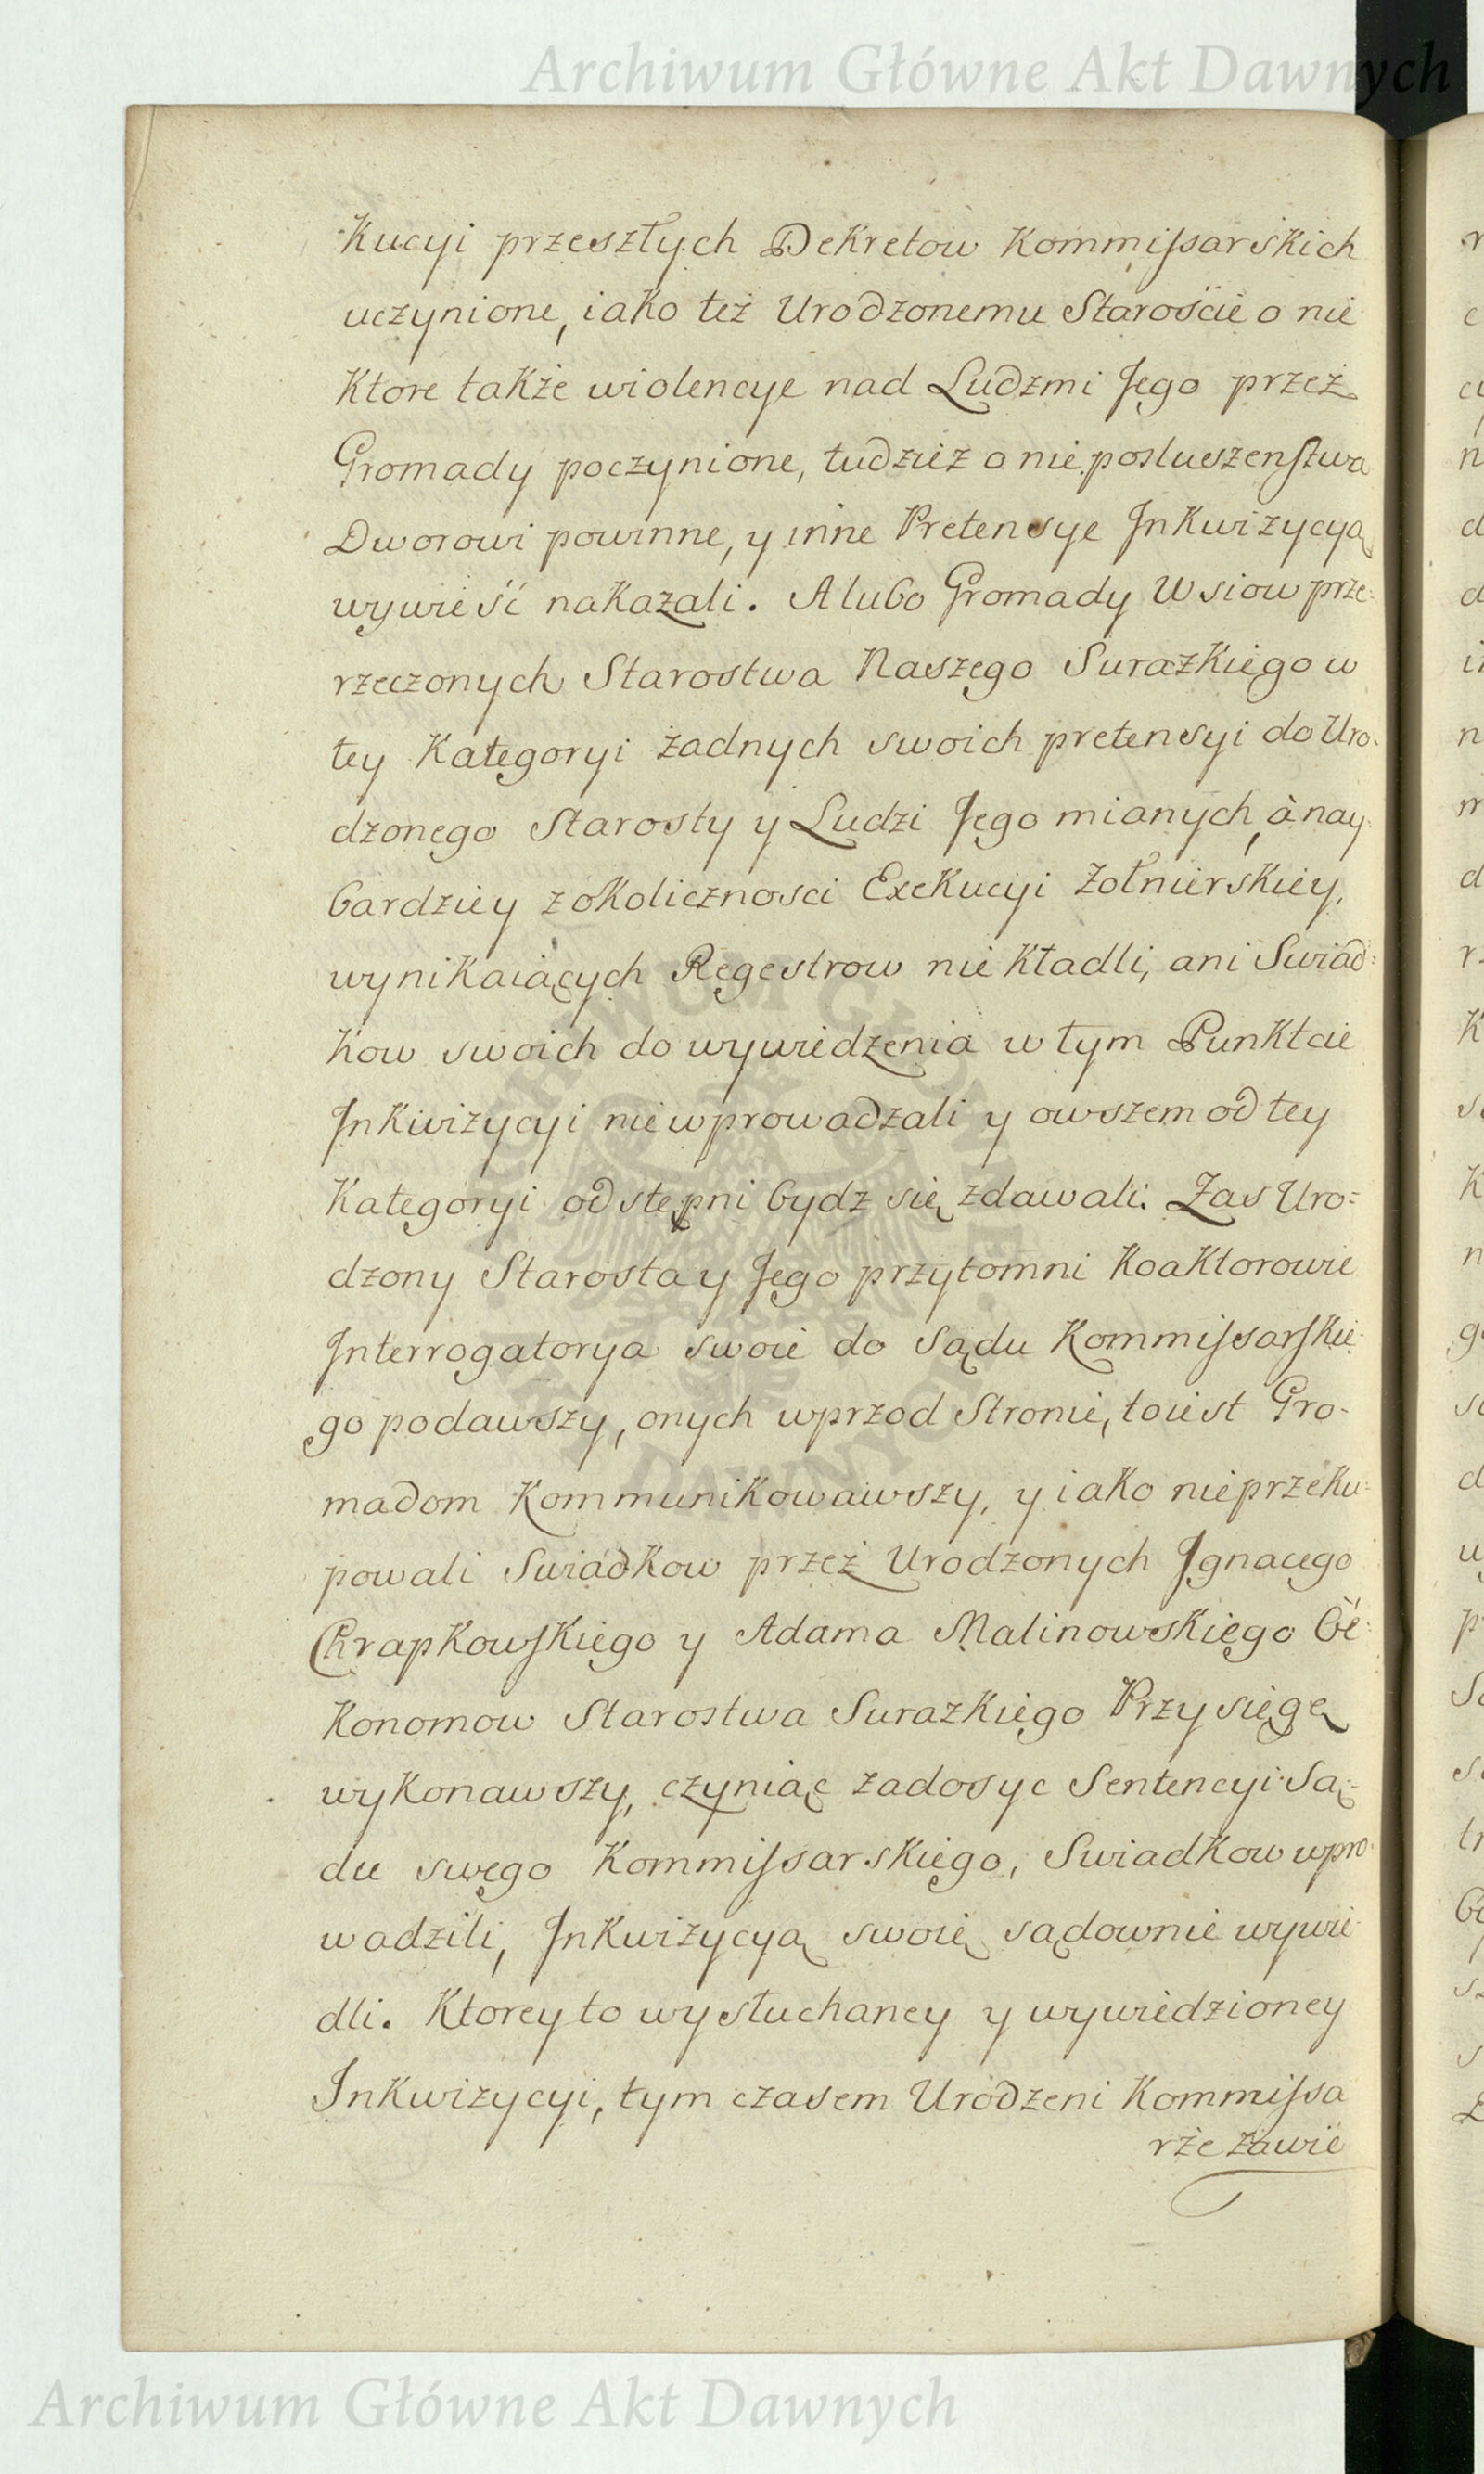 Archiwum Główne Akt Dawnych
Kucyi przeszłych Dekretow Kommissarskich
uczynione, iako też Urodzonemu Starośćie o nie
Ktore także wiolencye nad Ludzmi Jego przeż
Gromady poczynione, tudziez o nieposłuszenstwa
Dworowi powinne, y inne Pretensye Inkwizycyą
wywieść nakazali. A lubo Gromady Wsiow prze-
rzeczonych Starostwa Naszego Surazkiego w
tey Kategoryi żadnych swoich pretensyi do Uro-
dzonego Starosty y Ludzi Jego mianych, à nay-
bardziey z okolicznosci Exekucyi Zołnierskiey,
wynikaiących Regestrow nie Kładli, ani Swiad=
kow swoich do wywiedzenia w tym Punktcie
Inkwizycyi nie wprowadzali y owszem od tey
Kategoryi odstępni bydz się zdawali. Zas Uro=
dzony Starosta y Jego przytomni Koaktorowie
Interrogatorya swoie do Sądu Kommissarskie-
go podawszy, onych wprzod Stronie, to iest Gro-
madom Kommunikowawszy, y iako nieprzeku=
powali Swiadkow przeż Urodzonych Ignacego
Chrapkowskiego y Adama Malinowskiego Oe-
Konomow Starostwa Surazkiego Przysięgę
wykonawszy, czyniąc zadosyc Sentencyi Są-
du swego Kommissarskiego, Swiadkow wpro-
wadzili, Inkwizycyą swoię sądownie wywie-
dli. Ktorey to wysłuchaney y wywiedzioney
Inkwizycyi, tym czasem Urodzeni Kommissa
rże zawie
Archiwum Główne Akt Dawnych